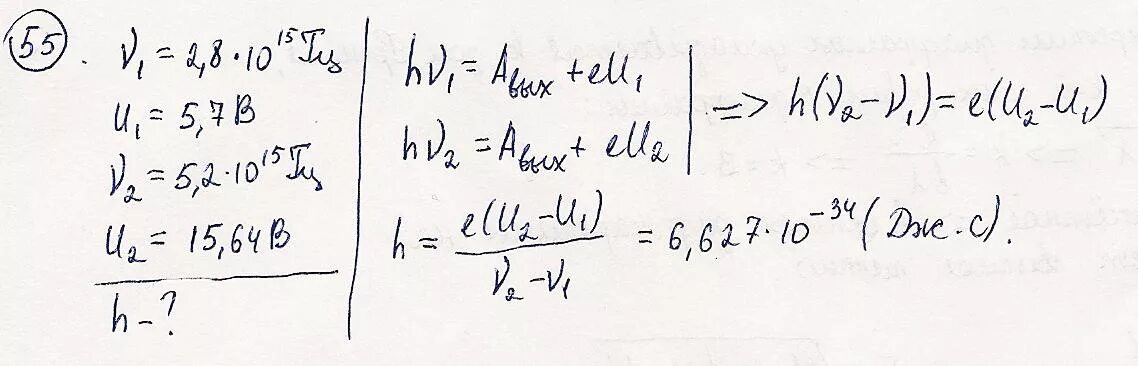 55.
ν₁ = 2,8·10¹⁵ Гц
U₁ = 5,7 В
ν₂ = 5,2·10¹⁵ Гц
U₂ = 15,64 В
h – ?
hν₁ = Aвых + eU₁
hν₂ = Aвых + eU₂
=> h(ν₂ – ν₁) = e(U₂ – U₁)
h = e(U₂ – U₁) / ν₂ – ν₁ = 6,627·10⁻³⁴ (Дж·с).